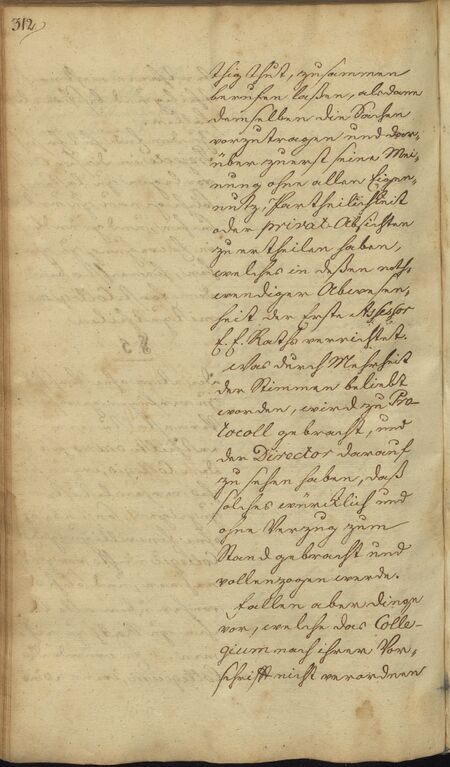 312
thig thut, zusammen
berufen laßen, alsdann
demselben die Sachen
vorzutragen und dar¬
über zuerst seine Mei¬
nung ohne allen Eigen¬
nutz, Partheilichkeit
oder privat-Absichten
zu ertheilen haben,
welches in deßen noth¬
wendiger Abwesen¬
heit der erste Assessor
E. E. Raths verrichtet.
Was durch Mehrheit
der Stimmen beliebt
worden, wird zu Pro¬
tocoll gebracht, und
der Director darauf
zu sehen haben, daß
solches würcklich und
ohne Verzug zum
Stand gebracht und
vollenzogen werde.
Fallen aber dinge
vor, welche das Colle¬
gium nach ihrer Vor¬
schrifft nicht verordnen